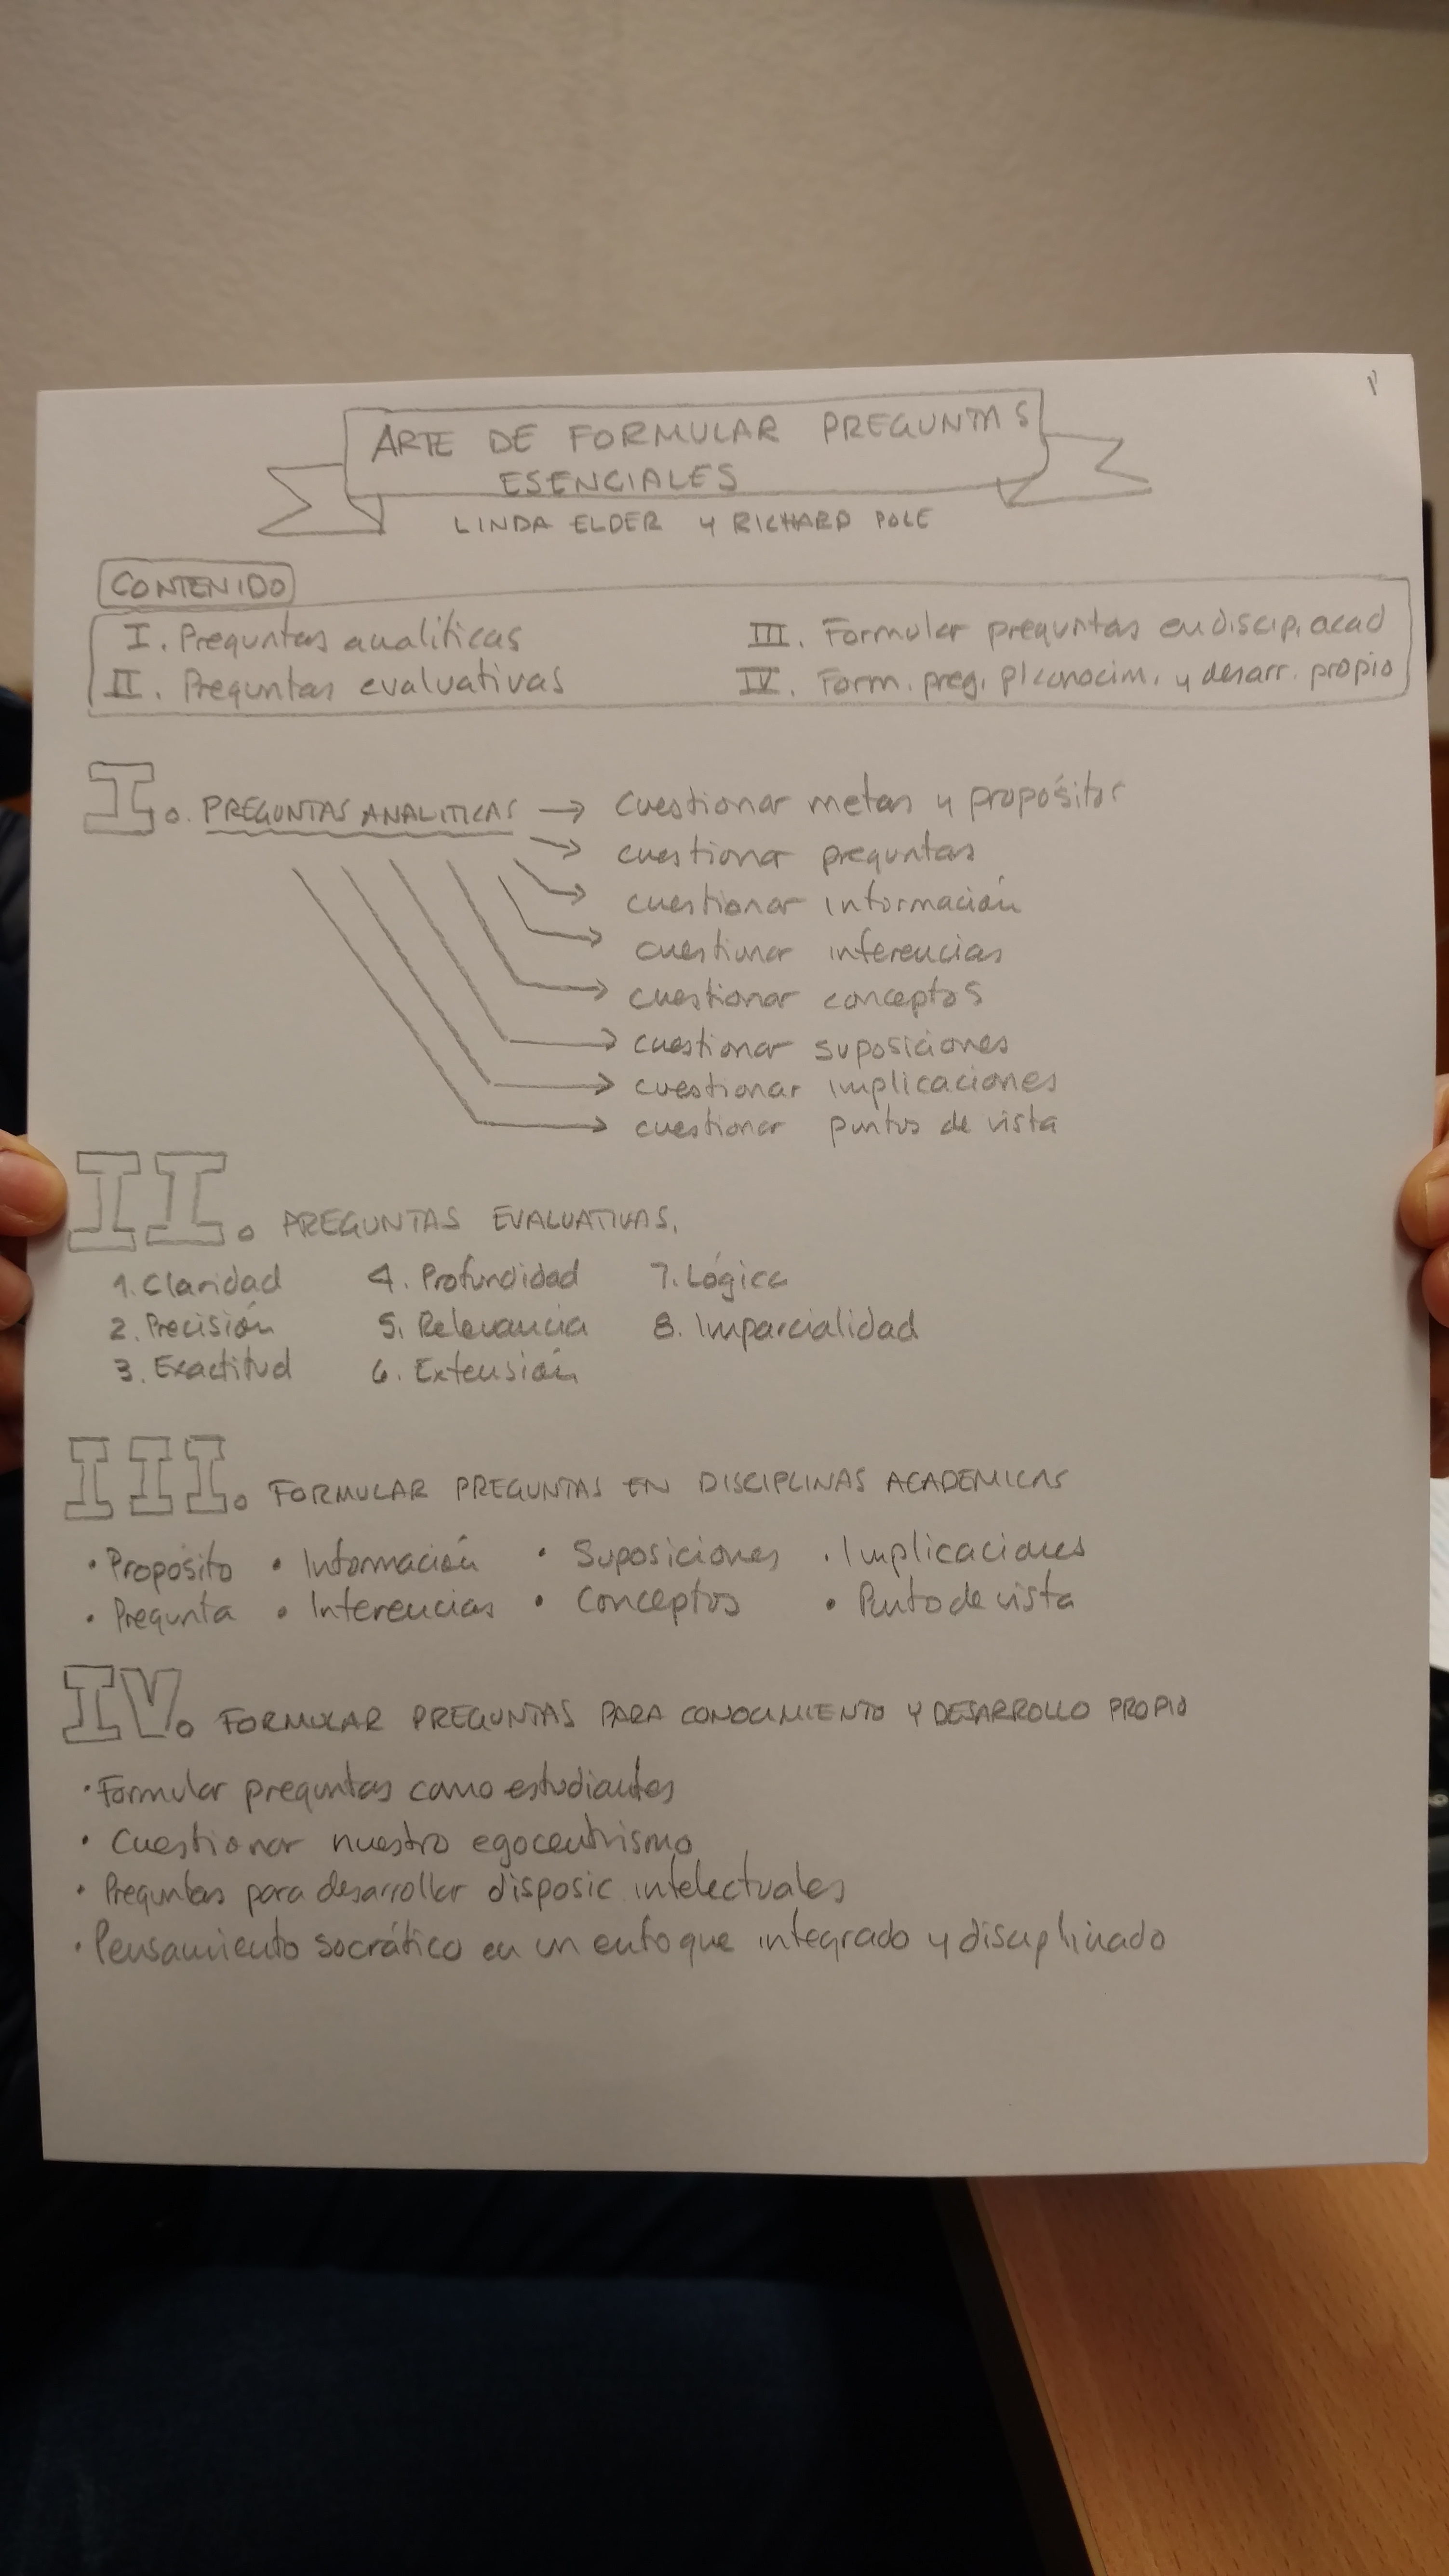 1
ARTE DE FORMULAR PREGUNTAS
ESENCIALES
LINDA ELDER Y RICHARD POLE
CONTENIDO
I. Preguntas analíticas
II. Preguntas evaluativas
III. Formular preguntas en discip. acad
IV. Form. preg. p/conocim. y desarr. propio
I. PREGUNTAS ANALITICAS → cuestionar metas y propósitos
→ cuestionar preguntas
→ cuestionar información
→ cuestionar inferencias
→ cuestionar conceptos
→ cuestionar suposiciones
→ cuestionar implicaciones
→ cuestionar puntos de vista
II. PREGUNTAS EVALUATIVAS.
1. Claridad 4. Profundidad 7. Lógica
2. Precisión 5. Relevancia 8. Imparcialidad
3. Exactitud 6. Extensión
III. FORMULAR PREGUNTAS EN DISCIPLINAS ACADEMICAS
• Propósito • Información • Suposiciones • Implicaciones
• Pregunta • Inferencias • Conceptos • Punto de vista
IV. FORMULAR PREGUNTAS PARA CONOCIMIENTO Y DESARROLLO PROPIO
• Formular preguntas como estudiantes
• Cuestionar nuestro egocentrismo
• Preguntas para desarrollar disposic intelectuales
• Pensamiento socrático en un enfoque integrado y disciplinado